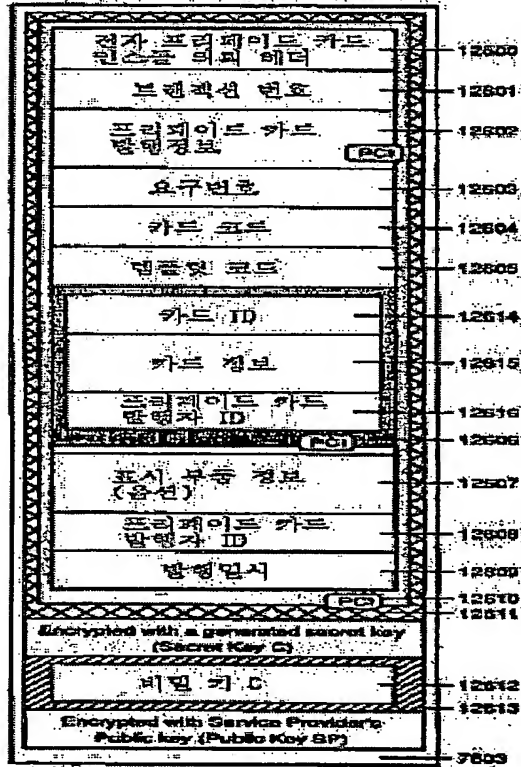 전자 프리페이드 카드
인스톨 의뢰 헤더
12600
트랜잭션 번호
12601
프리페이드 카드
발행정보
12602
PCI
요구번호
12603
카드 코드
12604
템플릿 코드
12605
카드 ID
12614
카드 정보
12615
프리페이드 카드
발행자 ID
12616
PCI
12606
표시 부품 정보
(옵션)
12607
프리페이드 카드
발행자 ID
12608
발행일시
12609
PCI
12610
12611
Encrypted with a generated secret key
(Secret Key C)
비밀 키 C
12612
12613
Encrypted with Service Provider's
Public key (Public Key SP)
7803